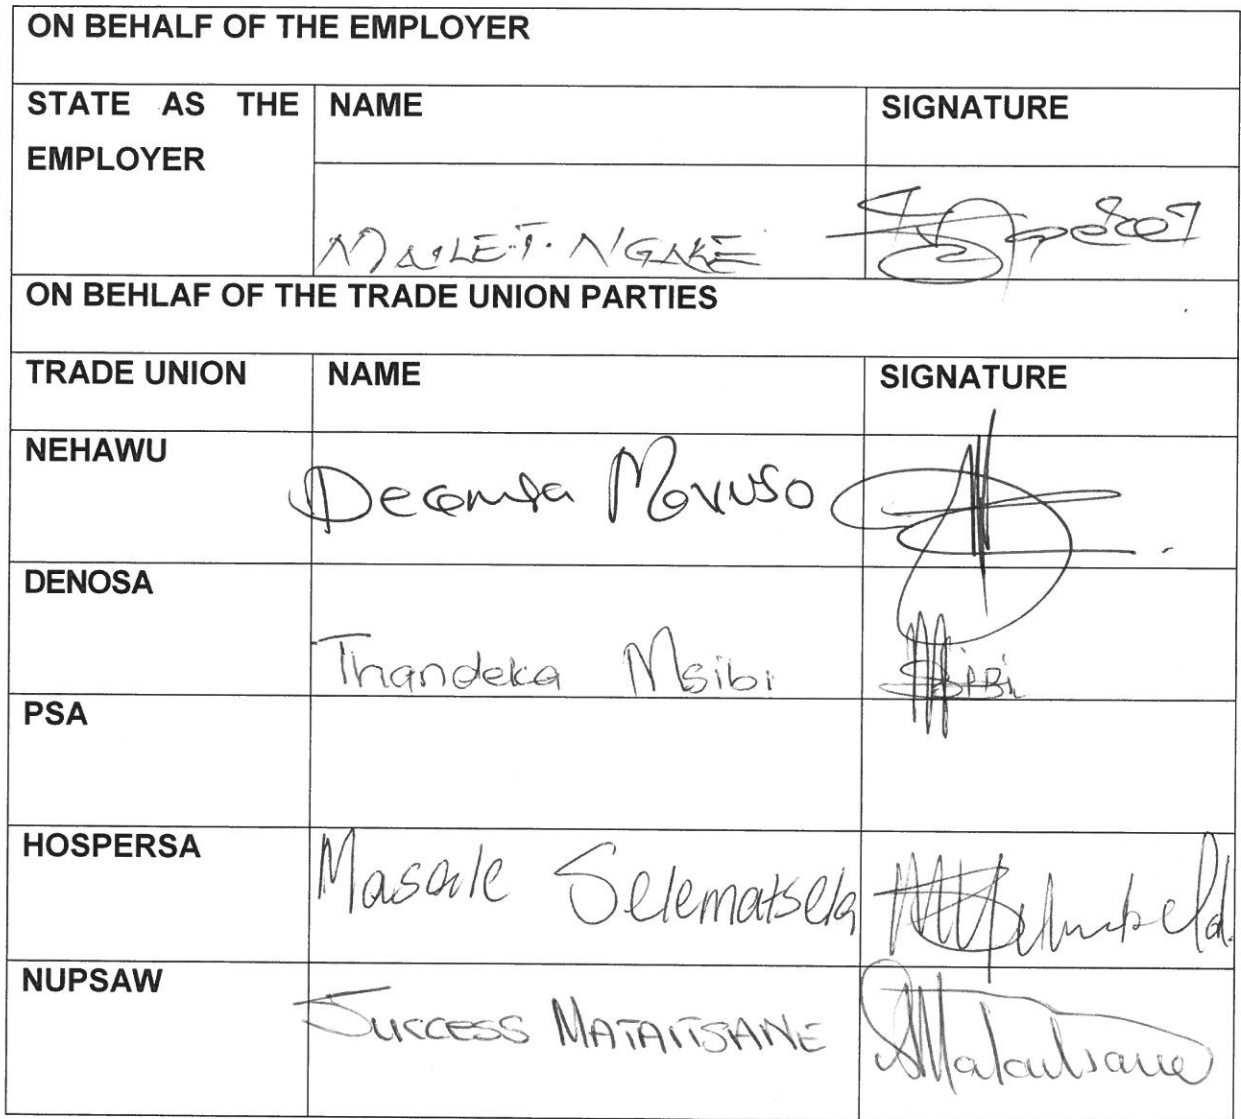 ON BEHALF OF THE EMPLOYER
STATE AS THE NAME SIGNATURE
EMPLOYER
NGAKE
ON BEHLAF OF THE TRADE UNION PARTIES
TRADE UNION NAME SIGNATURE
NEHAWU
Movuso
DENOSA
Thandeka Msibi
PSA
HOSPERSA
Selematsela
NUPSAW
SUCCESS MATAITSANE